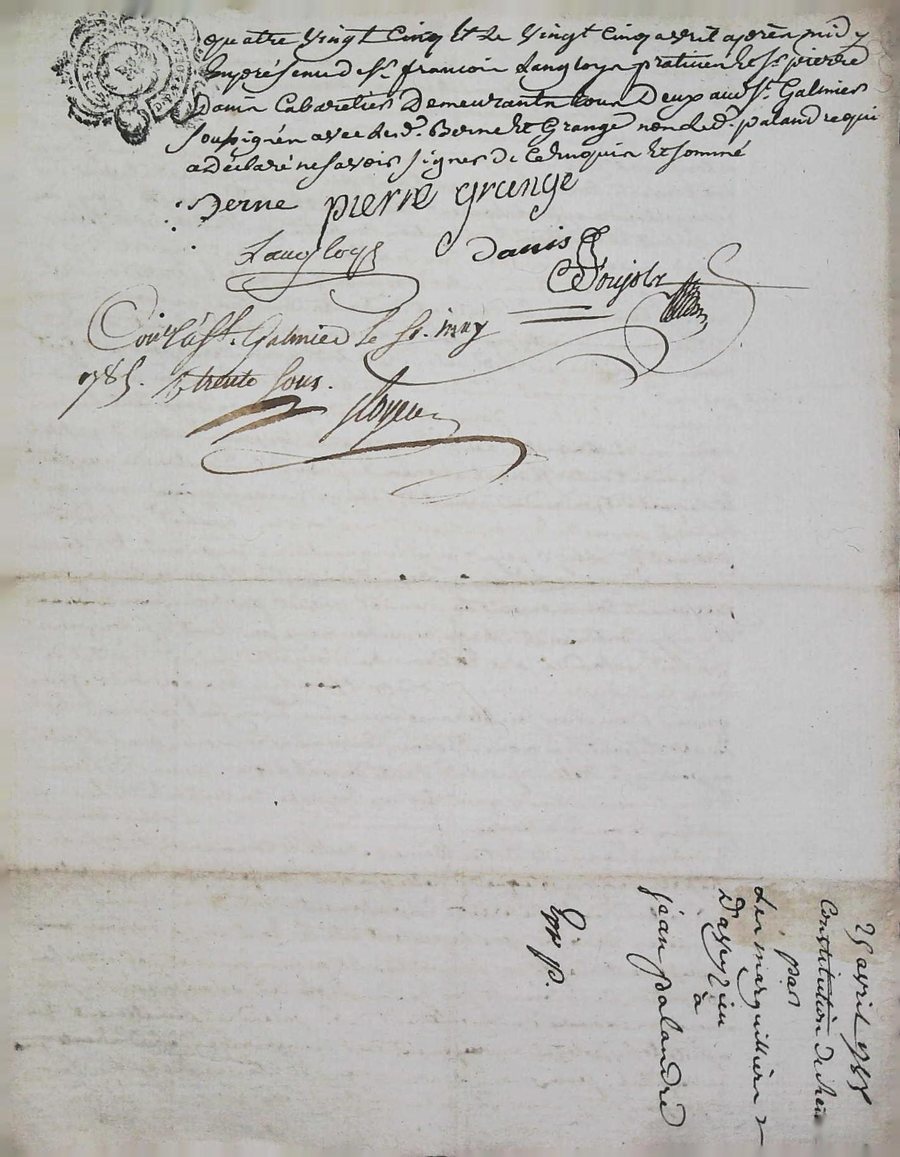 quatre vingt Cinq Et Le vingt Cinq avril après midy
En présence de Sr. françois Langloys praticien Et Sr. pierre
Danis Cabaretier Demeurants tous Deux audt St. Galmier
soussignés avec lesd. Berne Et Grange non led. palandre qui
a déclaré ne savoir signer de Ce Enquis Et sommé
Berne pierre grange
Langloys Danis
Poujols
Con.lé à St. Galmier le 1er. may
1785. R trente sous.
25 avril 1785
Constitution de
par
Les marguilliers
D'aveyzieu
à
jean palandre
Exp. p.